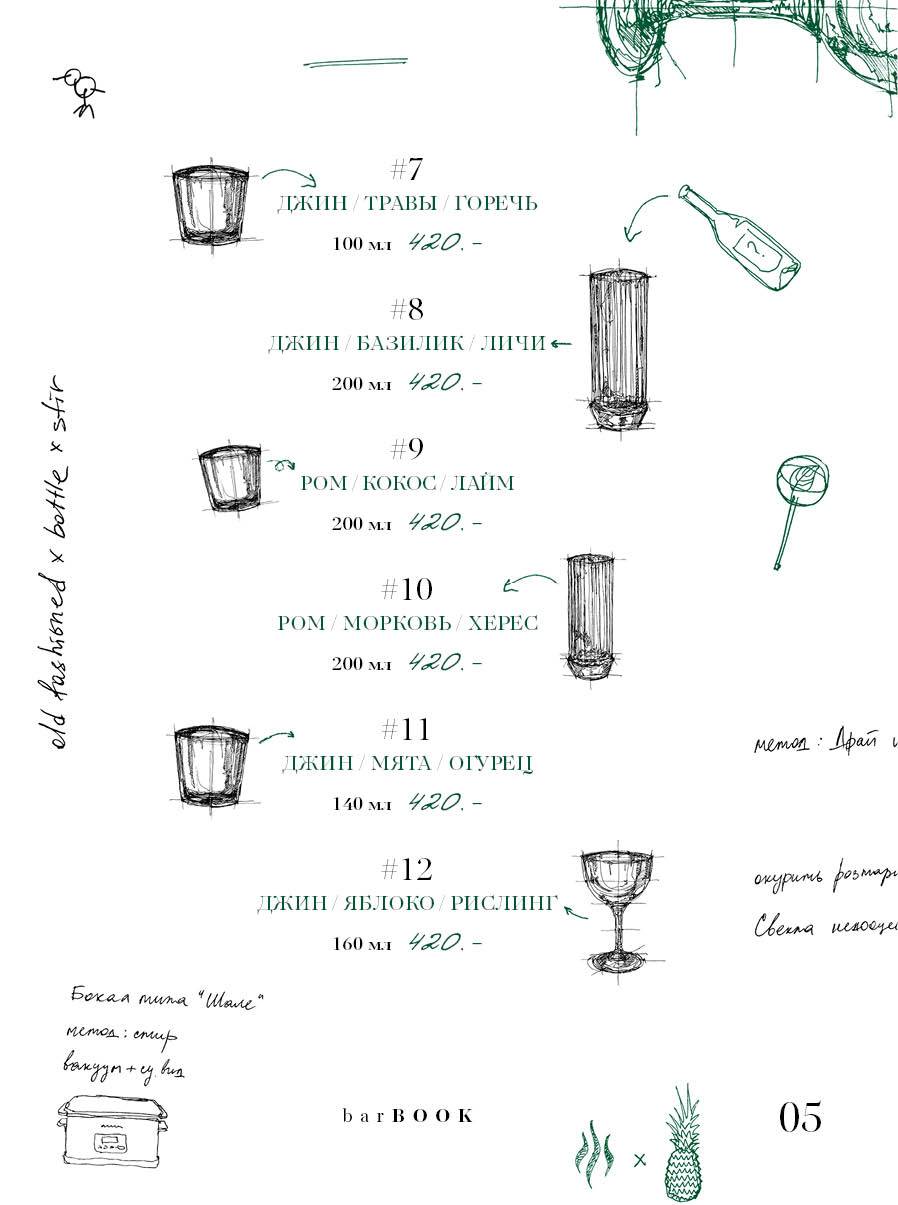 #7
ДЖИН / ТРАВЫ / ГОРЕЧЬ
100 мл 420.–
#8
ДЖИН / БАЗИЛИК / ЛИЧИ
200 мл 420.–
#9
РОМ / КОКОС / ЛАЙМ
200 мл 420.–
#10
РОМ / МОРКОВЬ / ХЕРЕС
200 мл 420.–
#11
ДЖИН / МЯТА / ОГУРЕЦ
140 мл 420.–
#12
ДЖИН / ЯБЛОКО / РИСЛИНГ
160 мл 420.–
old fashioned x bottle x stir
?
метод: Драй
окурить розмар
Свекла
Бокал типа "Шале"
метод: стир
вакуум + су вид
barBOOK
x
05